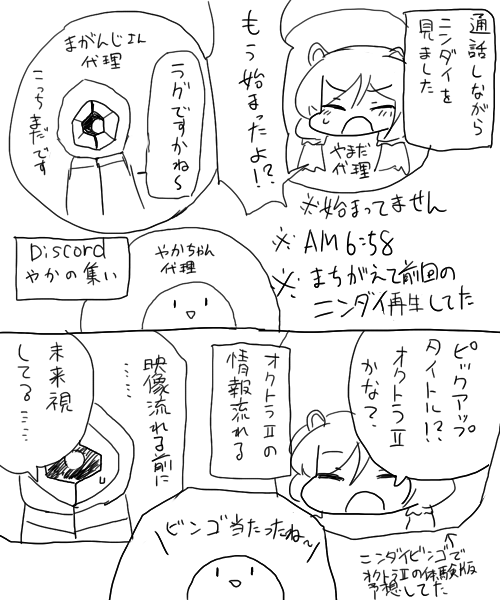 通話しながら
ニンダイを
見ました
もう始まったよ!?
やまだ
代理
まがんじさん
代理
ラグですかね〜
こっちまだです
※始まってません
※AM6:58
※まちがえて前回の
ニンダイ再生してた
Discord
やかの集い
やかちゃん
代理
ピックアップ
タイトル!?
オクトラⅡ
かな?
オクトラⅡの
情報流れる
映像流れる前に
……
未来視
してる……
ビンゴ当たったね〜
↑
ニンダイビンゴで
オクトラⅡの体験版
予想してた